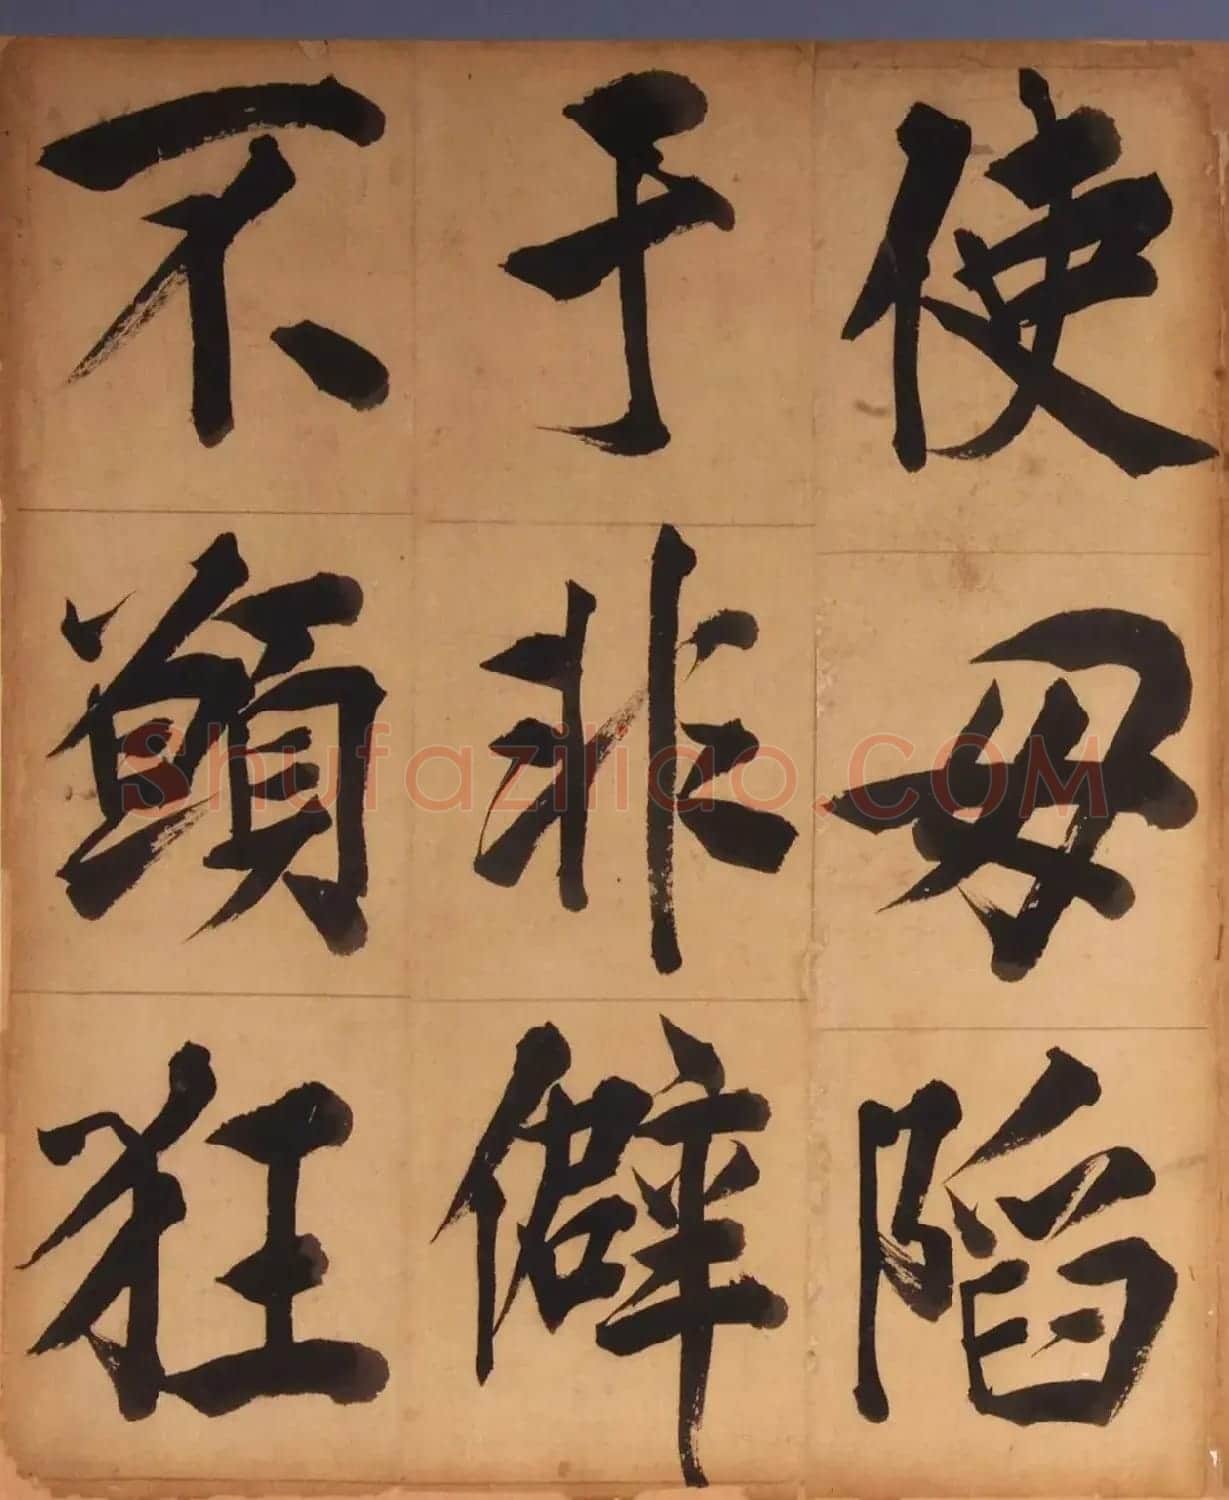 使毋陷
于非僻
不顛狂
Shufaziliao.COM